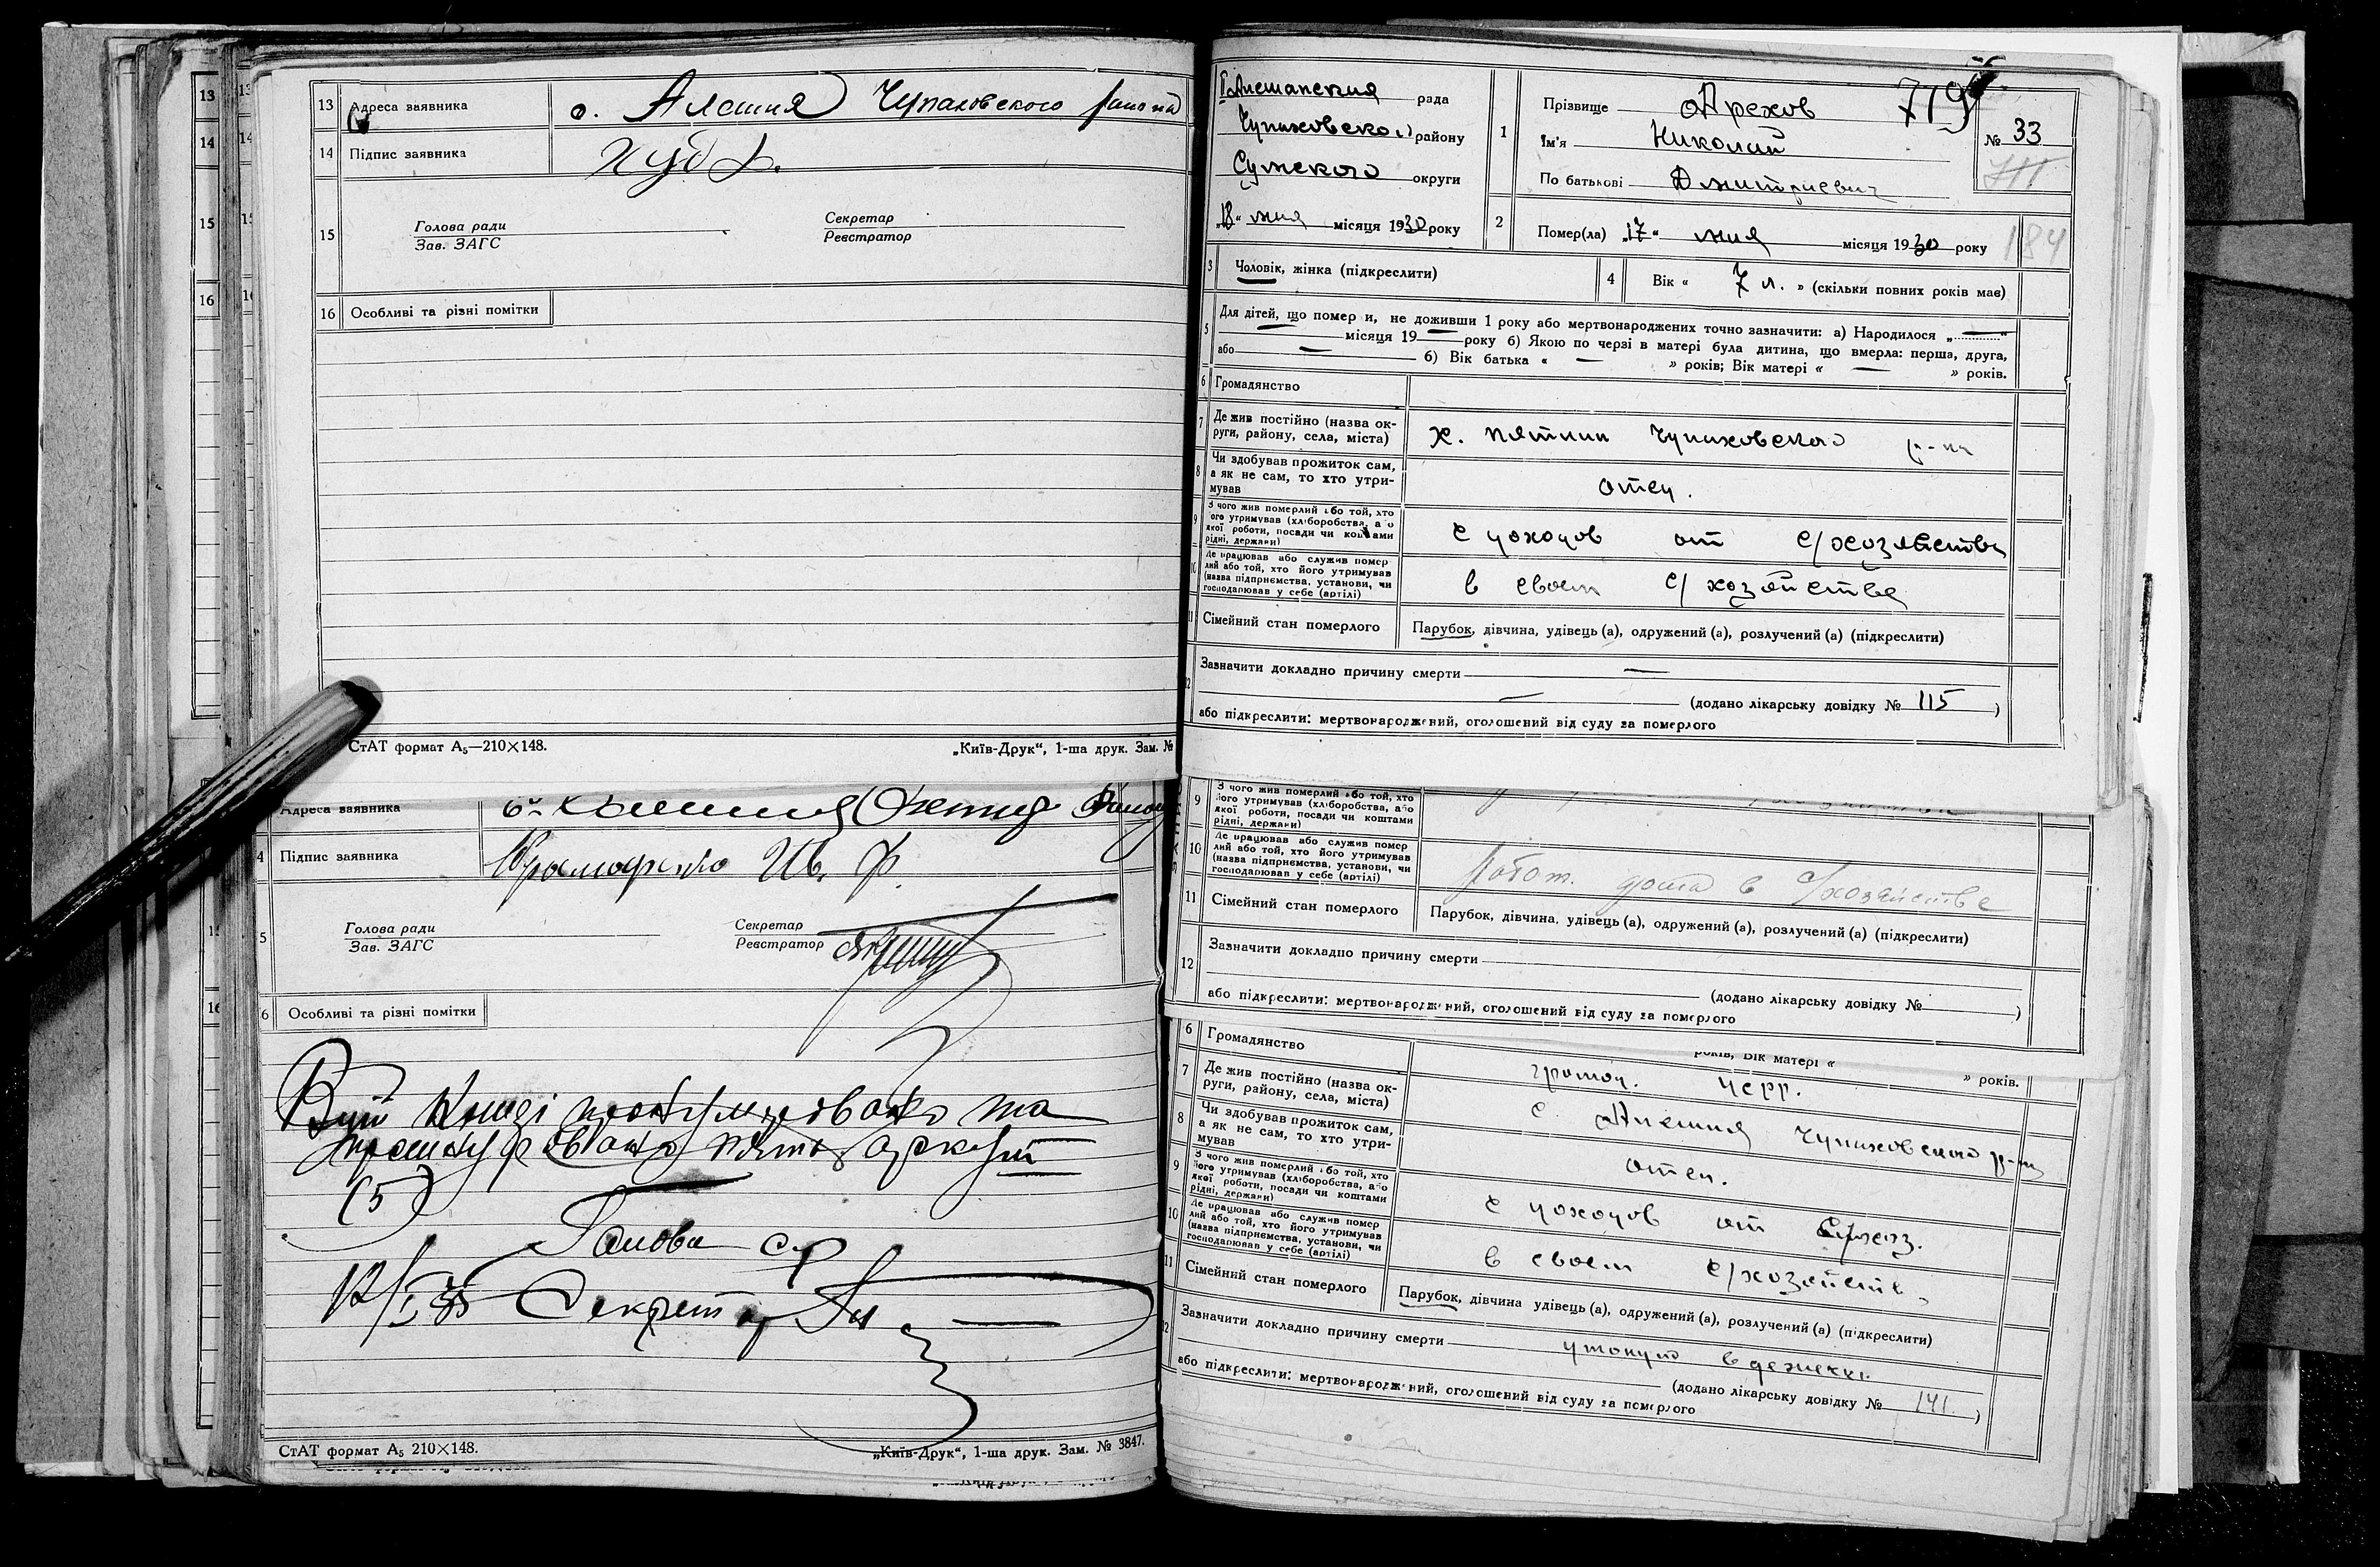 13 Адреса заявника с. Алешня Чупаховского района
14 Підпис заявника
15 Голова ради Секретар
Зав. ЗАГС Реєстратор
16 Особливі та різні помітки
СтАТ формат А₅—210×148. „Київ-Друк“, 1-ша друк. Зам. №
Адреса заявника
4 Підпис заявника Ив. Ф.
5 Голова ради Секретар
Зав. ЗАГС Реєстратор
6 Особливі та різні помітки
В цій книзі пронумеровано та
прошнуровано пять аркушів
(5)
Голова с/р
Секретар
СтАТ формат А₅ 210×148. „Київ-Друк“, 1-ша друк. Зам. № 3847.
Алешанская рада
Чупаховского району
Сумского округи
„18“ мая місяця 1930 року
1 Прізвище Арехов
Ім'я Николай
По батькові Дмитриевич
№ 33
2 Помер(ла) „17“ мая місяця 1930 року 184
3 Чоловік, жінка (підкреслити) 4 Вік « 7 л. » (скільки повних років має)
5 Для дітей, що померли, не доживши 1 року або мертвонароджених точно зазначити: а) Народилося „ — “
— місяця 19 — року б) Якою по черзі в матері була дитина, що вмерла: перша, друга,
або — б) Вік батька « — » років; Вік матері « — » років.
6 Громадянство
7 Де жив постійно (назва ок-
руги, району, села, міста) х. Чупаховского р-на
8 Чи здобував прожиток сам,
а як не сам, то хто утри-
мував отец.
9 З чого жив померлий або той, хто
його утримував (хліборобства, або
якої роботи, посади чи коштами
рідні, держави) с доходов от с/хозяйства
10 Де працював або служив помер
лий або той, хто його утримував
(назва підприємства, установи, чи
господарював у себе (артілі) в своем с/хозяйстве
11 Сімейний стан померлого Парубок, дівчина, удівець (а), одружений (а), розлучений (а) (підкреслити)
12 Зазначити докладно причину смерти —
— (додано лікарську довідку № 115)
або підкреслити: мертвонароджений, оголошений від суду за померлого
9 З чого жив померлий або той, хто
його утримував (хліборобства, або
якої роботи, посади чи коштами
рідні, держави)
10 Де працював або служив помер
лий або той, хто його утримував
(назва підприємства, установи, чи
господарював у себе (артілі) работ. дома в с/хозяйстве
11 Сімейний стан померлого Парубок, дівчина, удівець (а), одружений (а), розлучений (а) (підкреслити)
12 Зазначити докладно причину смерти
(додано лікарську довідку № )
або підкреслити: мертвонароджений, оголошений від суду за померлого
років, Вік матері « » років.
6 Громадянство
7 Де жив постійно (назва ок-
руги, району, села, міста) с. Алешня Чупаховского р-на
8 Чи здобував прожиток сам,
а як не сам, то хто утри-
мував отец.
9 З чого жив померлий або той, хто
його утримував (хліборобства, або
якої роботи, посади чи коштами
рідні, держави) с доходов от с/хоз.
10 Де працював або служив помер
лий або той, хто його утримував
(назва підприємства, установи, чи
господарював у себе (артілі) в своем с/хозяйств
11 Сімейний стан померлого Парубок, дівчина удівець (а), одружений (а), розлучений (а) (підкреслити)
12 Зазначити докладно причину смерти утонул в
(додано лікарську довідку № 141)
або підкреслити: мертвонароджений, оголошений від суду за померлого